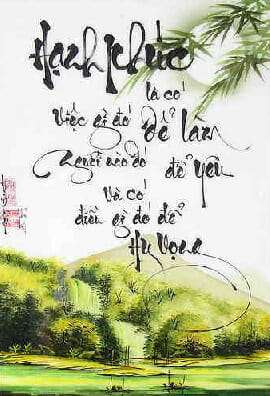 Hạnh phúc
là có
việc gì đó để làm
người nào đó để yêu
Và có
điều gì đó để
Hy vọng